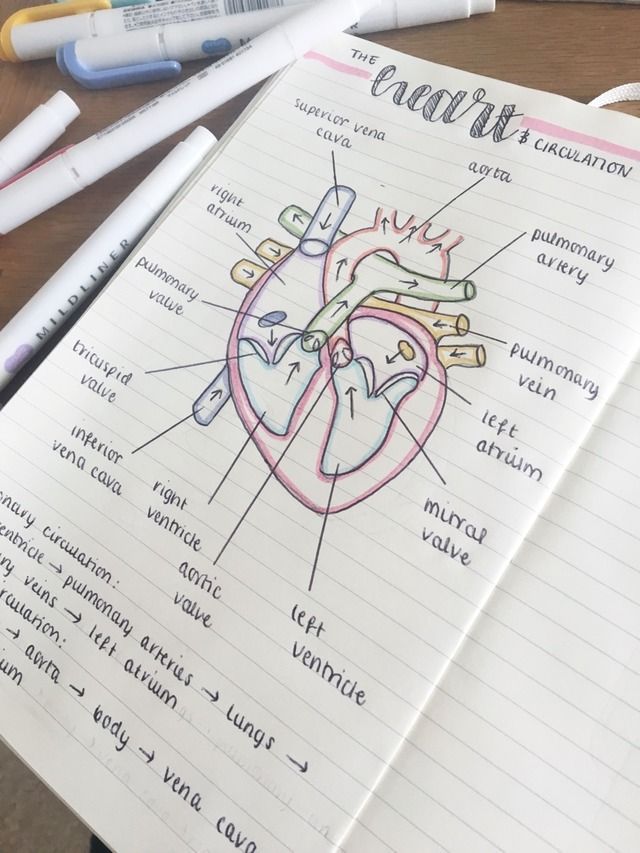 MILDLINER
THE
heart
& CIRCULATION
superior vena
cava
aorta
right
atrium
pulmonary
artery
pulmonary
valve
pulmonary
vein
tricuspid
valve
left
atrium
inferior
vena cava
right
ventricle
mitral
valve
aortic
valve
left
ventricle
circulation:
→ pulmonary arteries → lungs →
veins → left atrium
→ aorta → body → vena cava